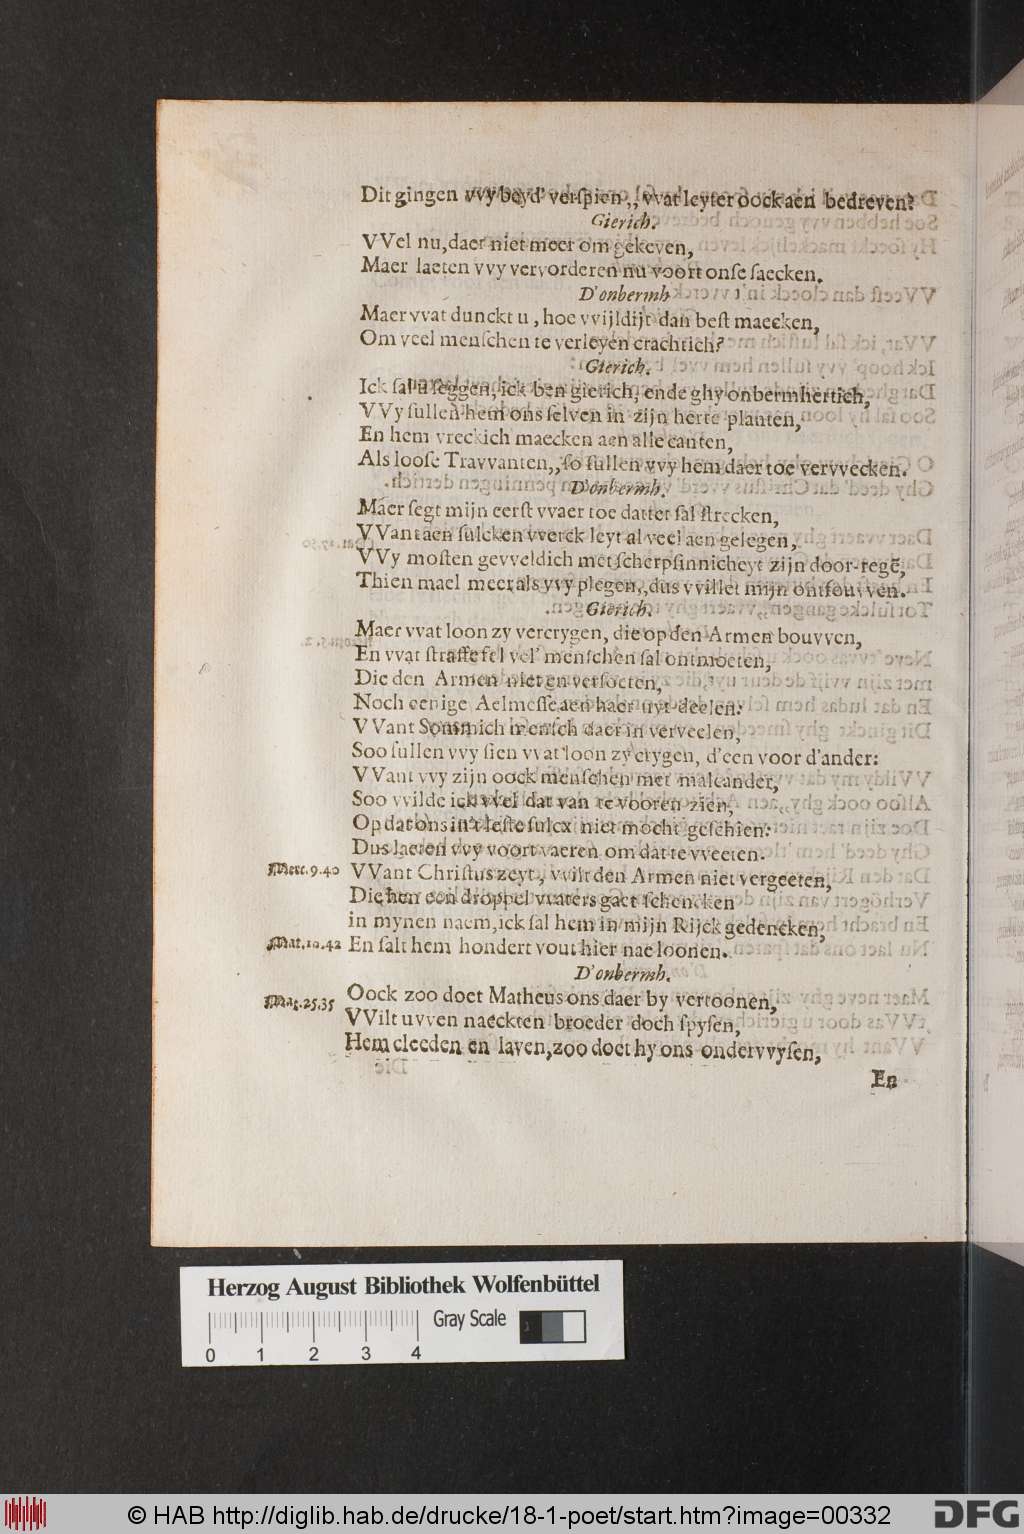 Dit gingen vvy beyd' verſpien,, vvat leyter oock aen bedreven?
Gierich.
VVel nu, daer niet meer om gekeven,
Maer laeten vvy vervorderen nu voort onſe ſaecken.
D'onbermh.
Maer vvat dunckt u, hoe vvijldijt dan beſt maecken,
Om veel menſchen te verleyen crachtich?
Gierich.
Ick ſal u ſeggen, ick ben gierich, ende ghy onbermhertich,
VVy ſullen hem ons ſelven in zijn herte planten,
En hem vreckich maecken aen alle canten,
Als looſe Travvanten,, ſo ſullen vvy hem daer toe vervvecken.
D'onbermh.
Maer ſegt mijn eerſt vvaer toe dattet ſal ſtrecken,
VVant aen ſulcken vverck leyt al veel aen gelegen,
VVy moſten gevveldich met ſcherpſinnicheyt zijn door-regē,
Thien mael meer als vvy plegen,, dus vvillet mijn ontfouvven.
Gierich.
Maer vvat loon zy vercrygen, die op den Armen bouvven,
En vvat ſtraffe ſel vel' menſchen ſal ontmoeten,
Die den Armen niet en verſoeten,
Noch eenige Aelmeſſe aen haer uyt deelen:
VVant menſch daer in verveelen,
Soo ſullen vvy ſien vvat loon zy crygen, d'een voor d'ander:
VVant vvy zijn oock menſchen met malcander,
Soo vvilde ick vvel dat van te vooren zien,
Op dat ons in't leſte ſulcx niet mocht geſchien:
Dus laeten vvy voort vaeren om dat te vveeten.
Marc. 9. 40 VVant Chriſtus zeyt, vvilt den Armen niet vergeeten,
Die hen een droppel vvaters gaet ſchencken
in mynen naem, ick ſal hem in mijn Rijck gedencken,
Mat. 10. 42 En ſalt hem hondert vout hier nae loonen.
D'onbermh.
Mat. 25. 35 Oock zoo doet Matheus ons daer by vertoonen,
VVilt uvven naeckten broeder doch ſpyſen,
Hem cleeden en laven, zoo doet hy ons ondervvyſen,
En
Herzog August Bibliothek Wolfenbüttel
Gray Scale
0 1 2 3 4
© HAB http://diglib.hab.de/drucke/18-1-poet/start.htm?image=00332
DFG